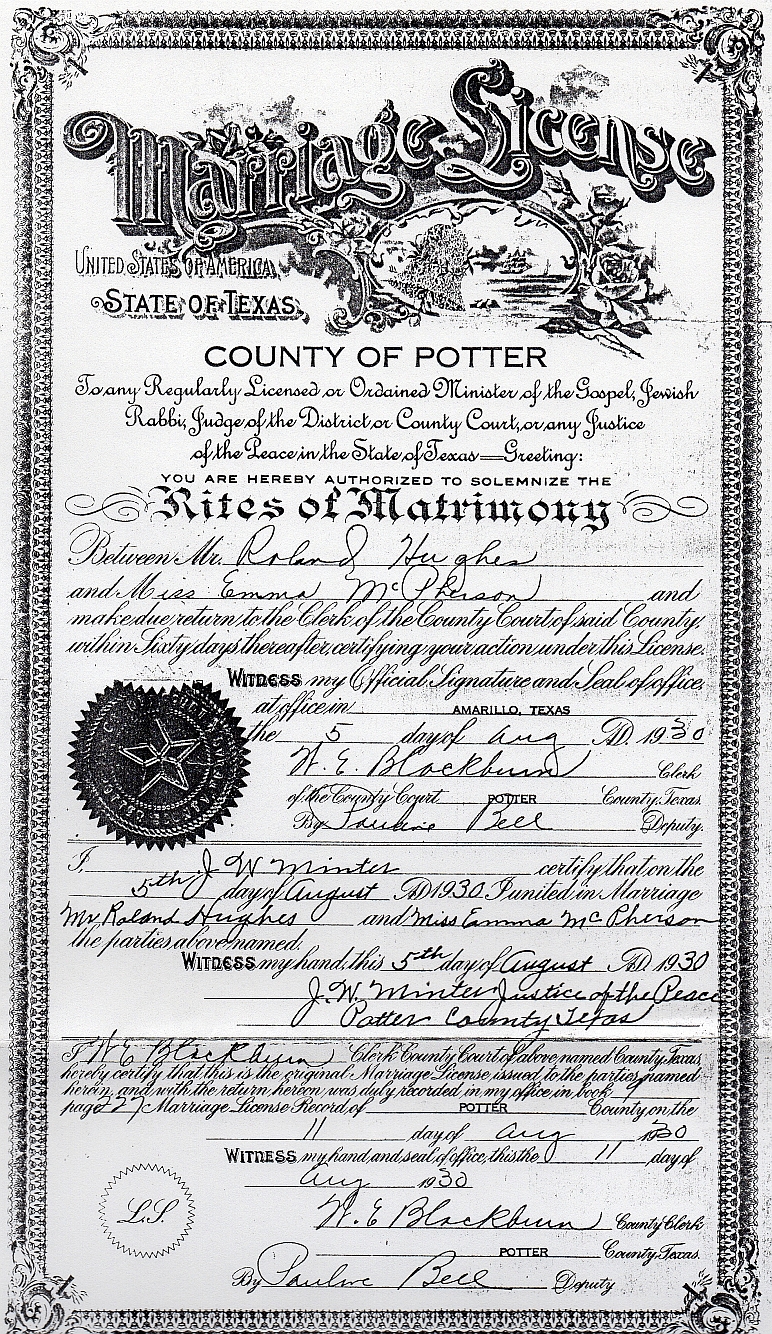 Marriage License
UNITED STATES OF AMERICA,
STATE OF TEXAS,
COUNTY OF POTTER
To any Regularly Licensed or Ordained Minister of the Gospel, Jewish
Rabbi, Judge of the District or County Court, or any Justice
of the Peace in the State of Texas—Greeting:
YOU ARE HEREBY AUTHORIZED TO SOLEMNIZE THE
Rites of Matrimony
Between Mr. Roland Hughes
and Miss Emma McPherson and
make due return to the Clerk of the County Court of said County,
within Sixty days thereafter, certifying your action under this License.
WITNESS my Official Signature and Seal of office,
at office in AMARILLO, TEXAS
the 5 day of Aug A.D. 1930
W. E. Blackburn Clerk
of the County Court POTTER County, Texas.
By Pauline Bell Deputy.
I, J W Minter certify that on the
5th day of August A.D. 1930. I united in Marriage
Mr Roland Hughes and Miss Emma McPherson
the parties above named.
WITNESS my hand, this 5th day of August A.D. 1930
J. W. Minter Justice of the Peace
Potter County Texas
I W E Blackburn Clerk County Court of above named County, Texas
hereby certify that this is the original Marriage License, issued to the parties named
herein, and with the return hereon was duly recorded in my office in book
page 227 Marriage License Record of POTTER County on the
11 day of Aug 1930
WITNESS my hand, and seal of office, this the 11 day of
Aug 1930
L.S.
W. E Blackburn County Clerk
POTTER County, Texas.
By Pauline Bell Deputy